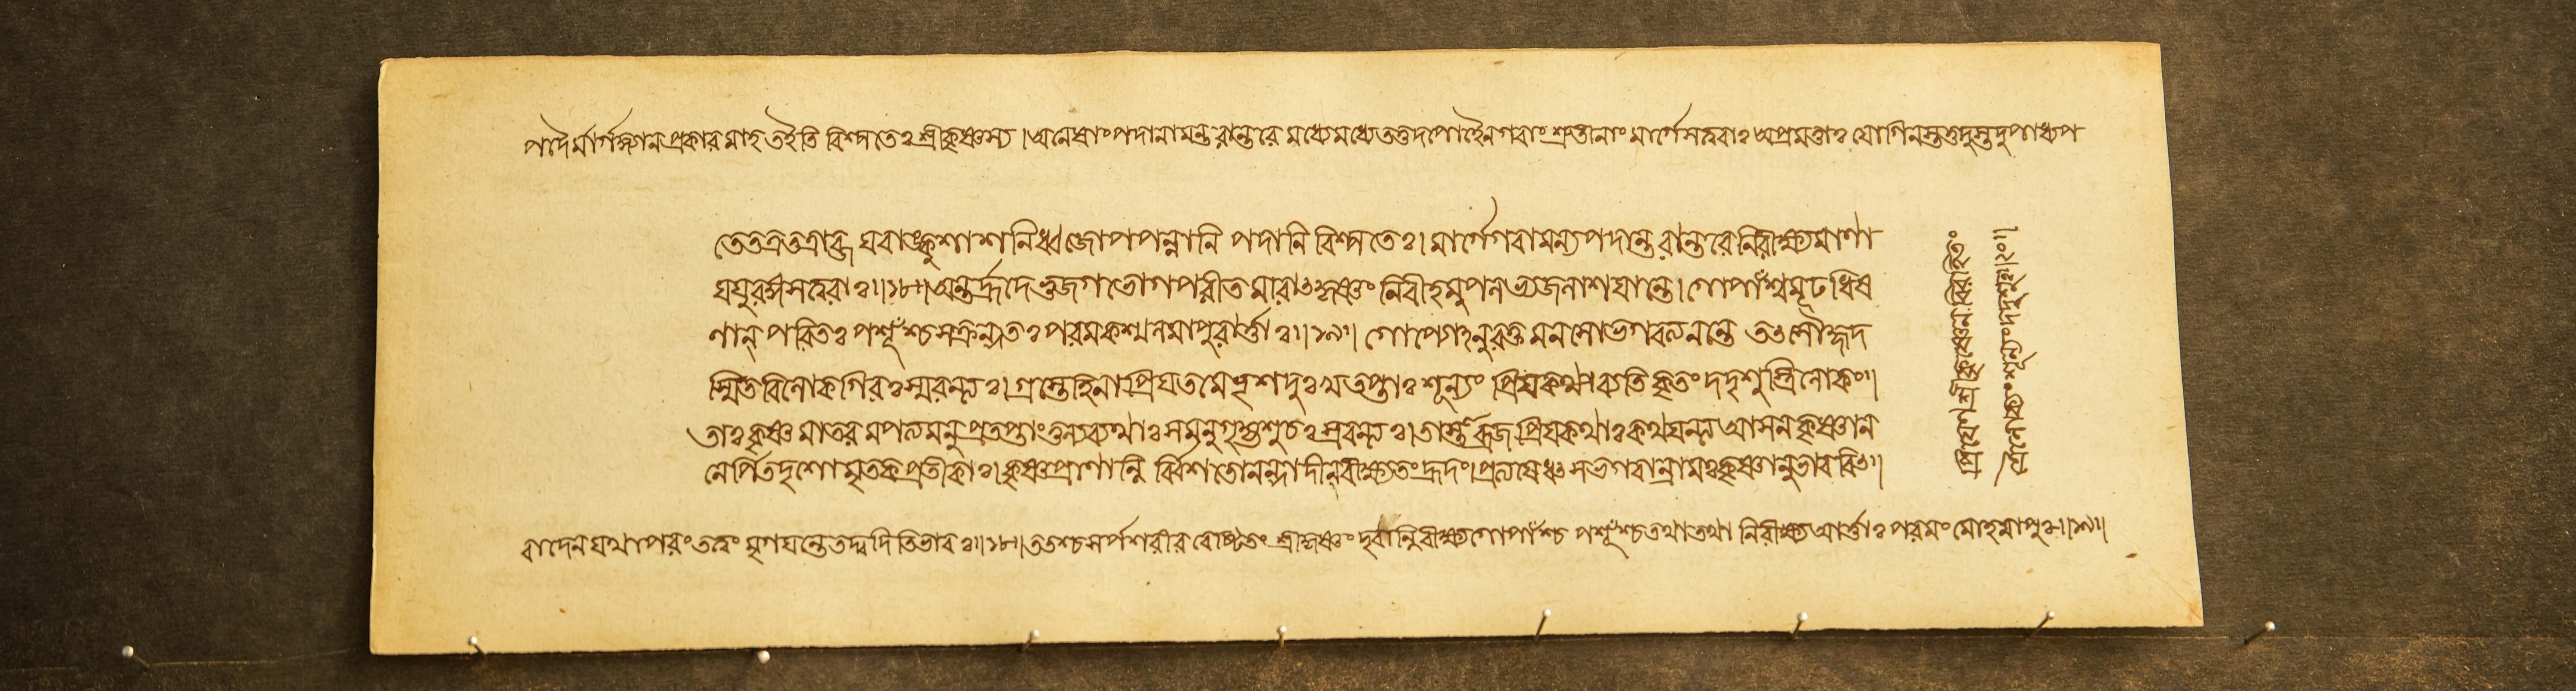 পদৈর্মার্গজ্ঞানপ্রকারমাহ তইতি বিশ্পতেঃ শ্রীকৃষ্ণস্য। অন্যেষাং পদানামন্তরান্তরে মধ্যেমধ্যে তত্তদপোহৈনগবাং শ্রুতীনাং মার্গেসত্বরাঃ অপ্রমত্তাঃ যোগিনস্তত্তদ্বস্তুদুপাধ্যপ
তেতত্রতত্রাব্জ যবাঙ্কুশাশনিধ্বজোপপন্নানি পদানি বিশ্পতেঃ। মার্গেগবামন্যপদান্তরান্তরে নিরীক্ষ্যমাণা
যযুরঙ্গসত্বরাঃ॥১৮॥ অন্তর্হ্রদে ভুজগভোগপরীতমারাৎকৃষ্ণং নিরীহমুপলভ্যজলাশয়ান্তে। গোপাঁশ্চমূঢধিষ
ণান্ পরিতঃ পশূঁশ্চ সংক্রন্দতঃ পরমকশ্মলমাপুরার্ত্তাঃ॥১৯॥ গোপ্যোঽনুরক্তমনসোভগবত্যনন্তে তৎসৌহৃদ
স্মিতবিলোকগিরঃ স্মরন্ত্যঃ। গ্রস্তেহিনাপ্রিয়তমেভৃশদুঃখতপ্তাঃ শূন্যং প্রিয়ব্যতিহৃতং দদৃশুস্ত্রিলোকং॥
তাঃ কৃষ্ণমাতরমপত্যমনুপ্রতপ্তাংতুল্যব্যথাঃ সমনুগৃহ্যশুচঃ স্রবন্ত্যঃ। তাস্তাব্রজপ্রিয়কথাঃ কথয়ন্ত্য আসন্ কৃষ্ণান
নের্পিতদৃশোমৃতকপ্রতীকাঃ। কৃষ্ণপ্রাণান্নির্ব্বিশতোনন্দাদীন্বীক্ষ্যতংহ্রদং। প্রত্যষেধৎসভগবান্রামঃ কৃষ্ণানুভাববিৎ॥
বাদেনযথাপরংতত্ত্বং মৃগয়ন্তেতদ্বদিতিভাবঃ॥১৮॥ ততশ্চসর্পশরীরবেষ্টিতং শ্রীকৃষ্ণং দূরান্নিরীক্ষ্যগোপাঁশ্চ পশূঁশ্চতথাতথা নিরীক্ষ্য আর্ত্তাঃ পরমং মোহমাপুঃ॥১৯॥